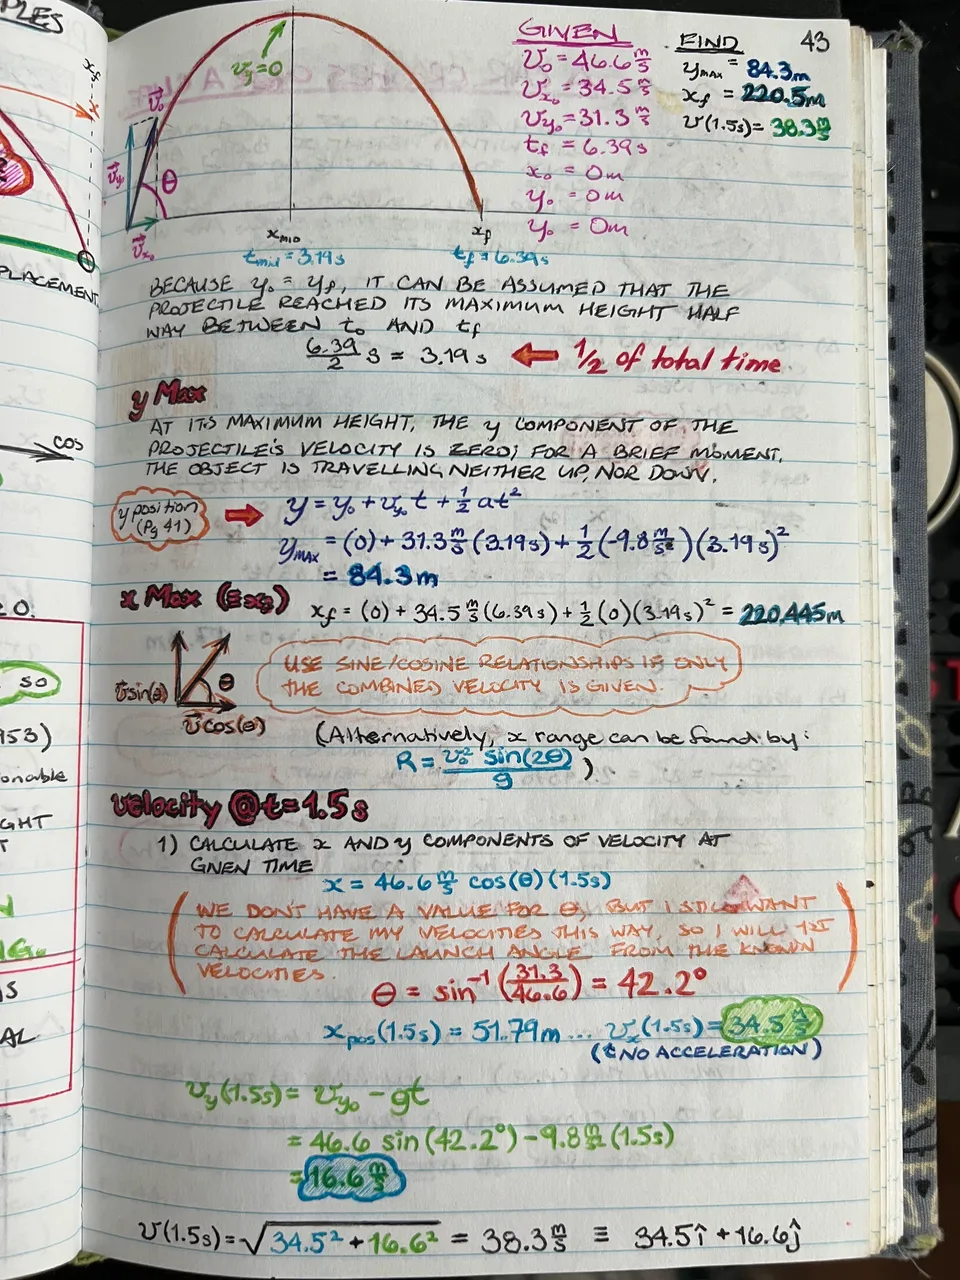 PLES
x_f
PLACEMENT
COS
≥ 0.
SO
953)
onable
GHT
T
N
NG.
S
AL
43
v_y = 0
v⃗_0
v⃗_y
θ
v⃗_x₀
x_MID
t_mid = 3.19s
x_f
t_f = 6.39s
GIVEN
v_0 = 46.6 m/s
v_x₀ = 34.5 m/s
v_y₀ = 31.3 m/s
t_f = 6.39s
x_0 = 0m
y_0 = 0m
y_0 = 0m
FIND
y_MAX = 84.3m
x_f = 220.5m
v(1.5s) = 38.3 m/s
BECAUSE y_0 = y_f, IT CAN BE ASSUMED THAT THE
PROJECTILE REACHED ITS MAXIMUM HEIGHT HALF
WAY BETWEEN t_0 AND t_f
6.39/2 s = 3.19 s ← 1/2 of total time
y Max
AT ITS MAXIMUM HEIGHT, THE y COMPONENT OF THE
PROJECTILE'S VELOCITY IS ZERO; FOR A BRIEF MOMENT,
THE OBJECT IS TRAVELLING NEITHER UP, NOR DOWN.
y position
(Pg 41)
→ y = y_0 + v_y₀ t + 1/2 at²
y_MAX = (0) + 31.3 m/s (3.19s) + 1/2 (-9.8 m/s²)(3.19s)²
= 84.3m
x Max (≡ x_f) x_f = (0) + 34.5 m/s (6.39s) + 1/2 (0)(3.19s)² = 220.445m
v⃗ sin(θ)
θ
v⃗ cos(θ)
USE SINE/COSINE RELATIONSHIPS IF ONLY
THE COMBINED VELOCITY IS GIVEN.
(Alternatively, x range can be found by:
R = v_0² sin(2θ)/g )
Velocity @ t = 1.5s
1) CALCULATE x AND y COMPONENTS OF VELOCITY AT
GIVEN TIME
x = 46.6 m/s cos(θ)(1.5s)
(WE DON'T HAVE A VALUE FOR θ, BUT I STILL WANT
TO CALCULATE MY VELOCITIES THIS WAY, SO I WILL 1ST
CALCULATE THE LAUNCH ANGLE FROM THE KNOWN
VELOCITIES.)
θ = sin⁻¹(31.3/46.6) = 42.2°
x_pos(1.5s) = 51.79m ... v_x(1.5s) = 34.5 m/s
NO ACCELERATION)
v_y(1.5s) = v_y₀ - gt
= 46.6 sin(42.2°) - 9.8 m/s² (1.5s)
= 16.6 m/s
v(1.5s) = √34.5² + 16.6² = 38.3 m/s ≡ 34.5î + 16.6ĵ